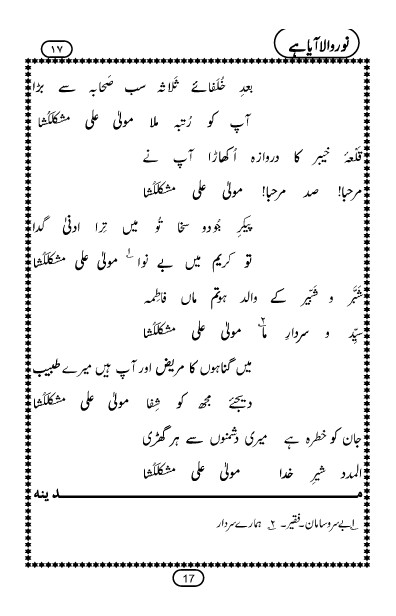 نور والا آیا ہے
۱۷
بعدِ خُلَفائے ثَلاثہ سب صَحابہ سے بڑا
آپ کو رُتبہ ملا مولیٰ علی مشکلکُشا
قَلْعۂ خیبر کا دروازہ اُکھاڑا آپ نے
مرحبا! صد مرحبا! مولیٰ علی مشکلکُشا
پیکرِ جُودو سخا تُو میں تِرا ادنیٰ گدا
تو کریم میں بے نوا۱ مولیٰ علی مشکلکُشا
شَبَّر و شَبِّیر کے والد ہوتم ماں فاطِمہ
سیِّد و سردارِ ما۲ مولیٰ علی مشکلکُشا
میں گناہوں کا مریض اور آپ ہیں میرے طبیب
دیجئے مجھ کو شِفا مولیٰ علی مشکلکُشا
جان کو خطرہ ہے میری دشمنوں سے ہر گھڑی
المدد شیرِ خدا مولیٰ علی مشکلکُشا
مدینہ
۱ بے سروسامان۔ فقیر۔ ۲ ہمارے سردار
17